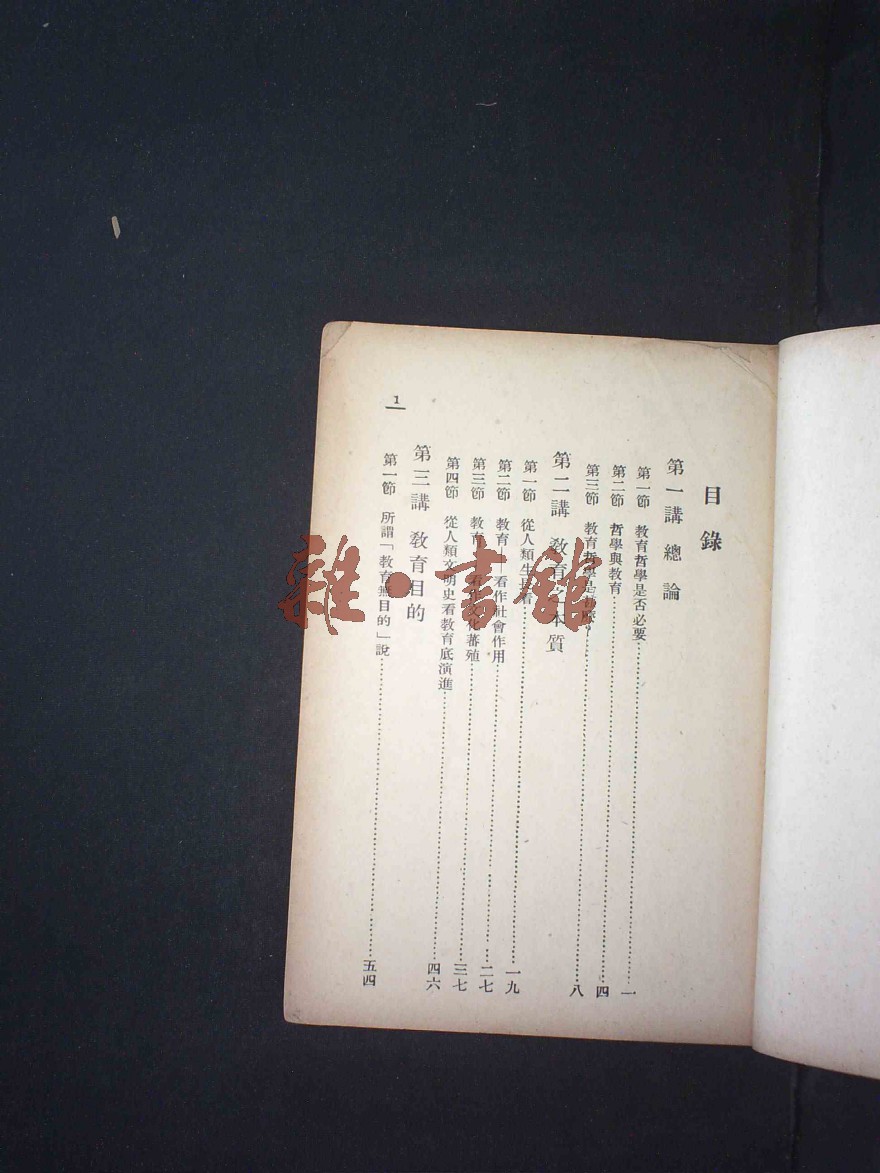 目錄
第一講 總論
第一節 教育哲學是否必要……一
第二節 哲學與教育……四
第三節 教育哲學是甚麼……八
第二講 教育本質
第一節 從人類生 看……一九
第二節 教育 看作社會作用……二七
第三節 教育 化蕃殖……三七
第四節 從人類文明史看教育底演進……四六
第三講 教育目的
第一節 所謂「教育無目的」說……五四
1
雜·書館